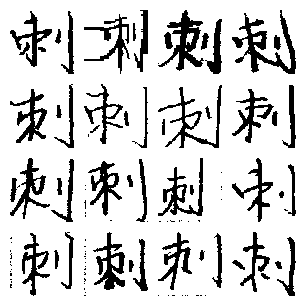 刺刺刺刺
刺刺刺刺
刺刺刺刺
刺刺刺刺